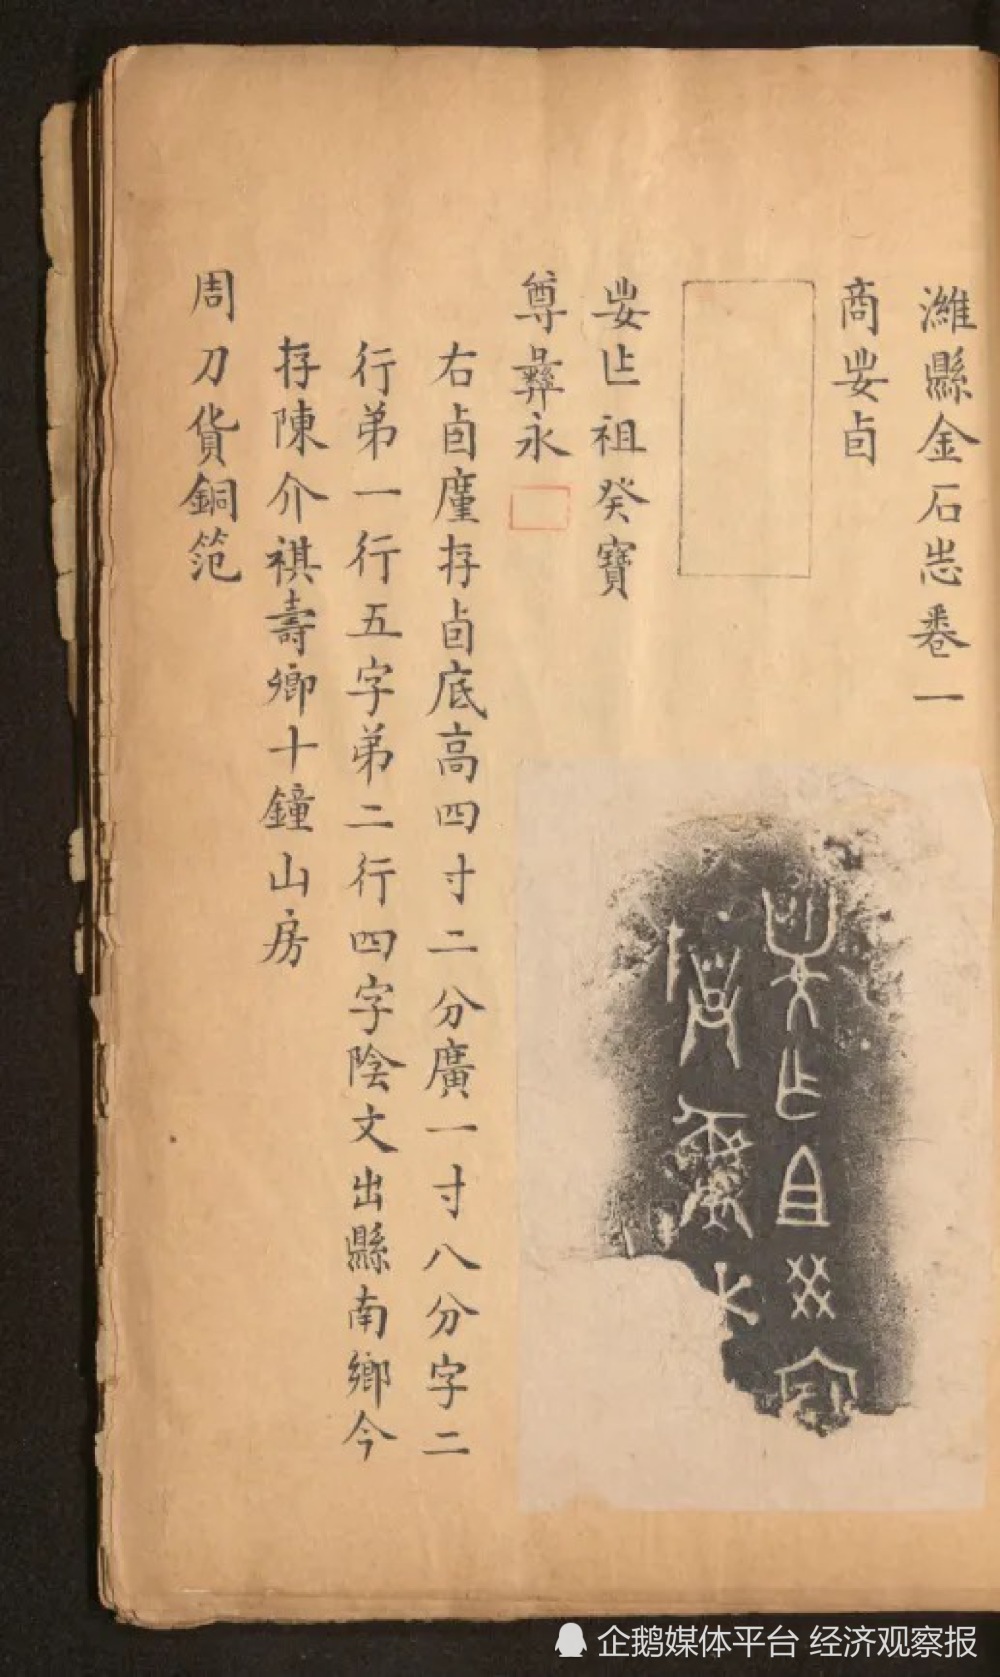 濰縣金石志卷一
商𡚱卣
𡚱乍祖癸寶
尊彝永
右卣廑存卣底高四寸二分廣一寸八分字二
行弟一行五字弟二行四字陰文出縣南鄉今
存陳介祺壽卿十鐘山房
周刀貨銅笵
企鹅媒体平台 经济观察报